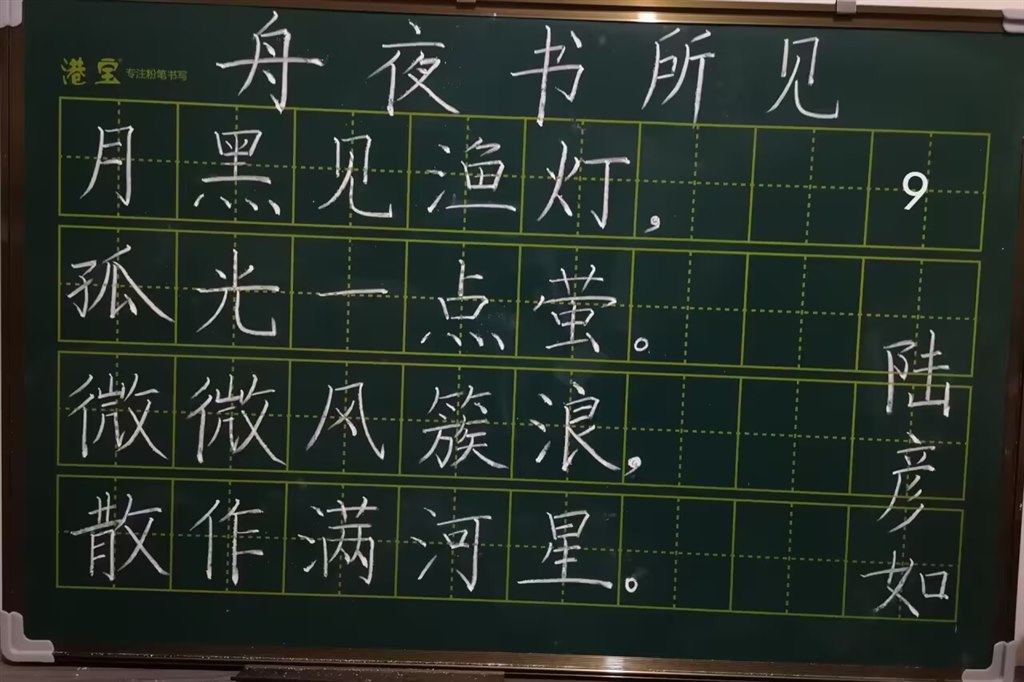 舟夜书所见
港宝 专注粉笔书写
月黑见渔灯，
9
孤光一点萤。
微微风簇浪，
散作满河星。
陆彦如